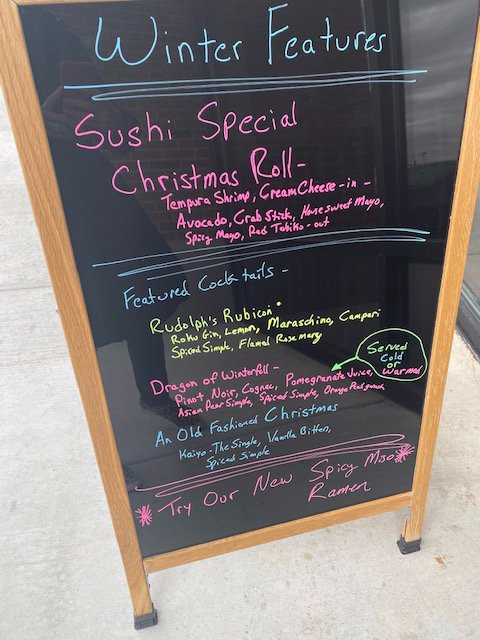 Winter Features
Sushi Special
Christmas Roll -
Tempura Shrimp, Cream Cheese - in -
Avocado, Crab Stick, House sweet Mayo,
Spicy Mayo, Red Tobiko - out
Featured Cocktails -
Rudolph's Rubicon
Roku Gin, Lemon, Maraschino, Campari
Spiced Simple, Flamed Rosemary
Served
Cold
or
Warmed
Dragon of Winterfell -
Pinot Noir, Cognac, Pomegranate Juice,
Asian Pear Simple, Spiced Simple, Orange
An Old Fashioned Christmas
Kaiyo - The Single, Vanilla Bitters,
Spiced Simple
Try Our New Spicy Miso
Ramen